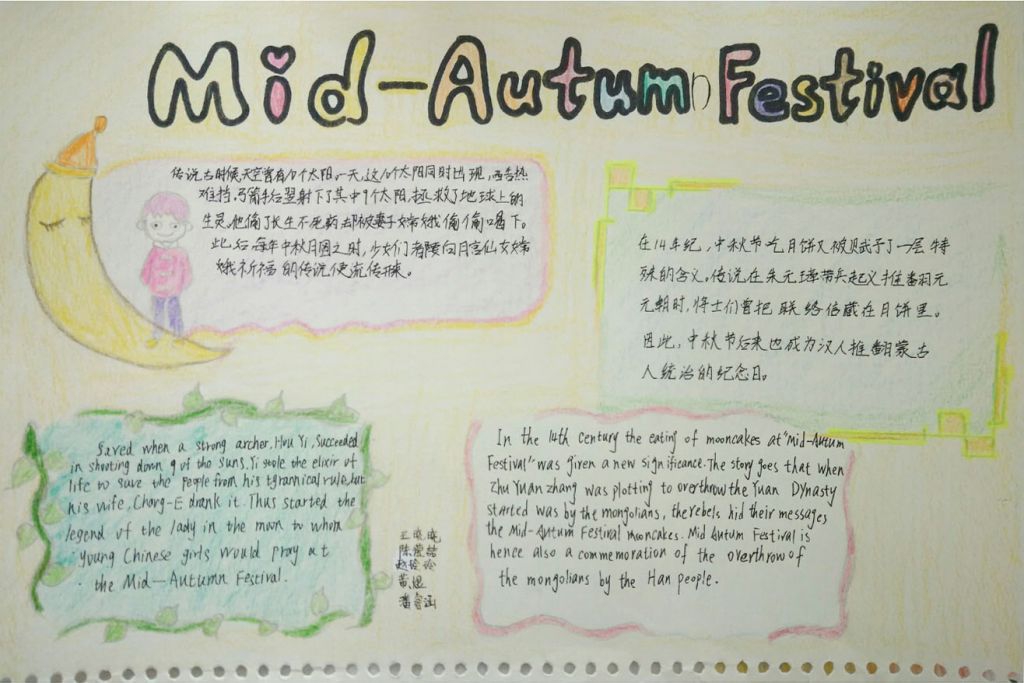 Mid-Autumn Festival
传说古时候,天空曾有10个太阳。一天,这10个太阳同时出现,酷热
难挡。弓箭手后翌射下了其中9个太阳,拯救了地球上的
生灵。他偷了长生不死药,却被妻子嫦娥偷偷喝下。
此后每年中秋月圆之时,少女们都要向月宫仙女嫦
娥祈福的传说便流传开来。
在14年纪,中秋节吃月饼又被赋予了一层特
殊的含义。传说在朱元璋带兵起义推翻元
元朝时,将士们曾把联络信藏在月饼里。
因此,中秋节后来也成为汉人推翻蒙古
人统治的纪念日。
Saved when a strong archer, Hou Yi, Succeeded
in shooting down 9 of the suns. Yi stole the elixir of
life to save the people from his tyrannical rule, but
his wife, Chang-E drank it. Thus started the
legend of the lady in the moon to whom
young Chinese girls would pray at
the Mid-Autumn Festival.
In the 14th century the eating of mooncakes at "Mid-Autum
Festival" was given a new significance. The story goes that when
Zhu Yuan zhang was plotting to overthrow the Yuan DYnasty
started was by the mongolians, the rebels hid their messages
the Mid-Autum Festival mooncakes. Mid Autum Festival is
hence also a commemoration of the overthrow of
the mongolians by the Han people.